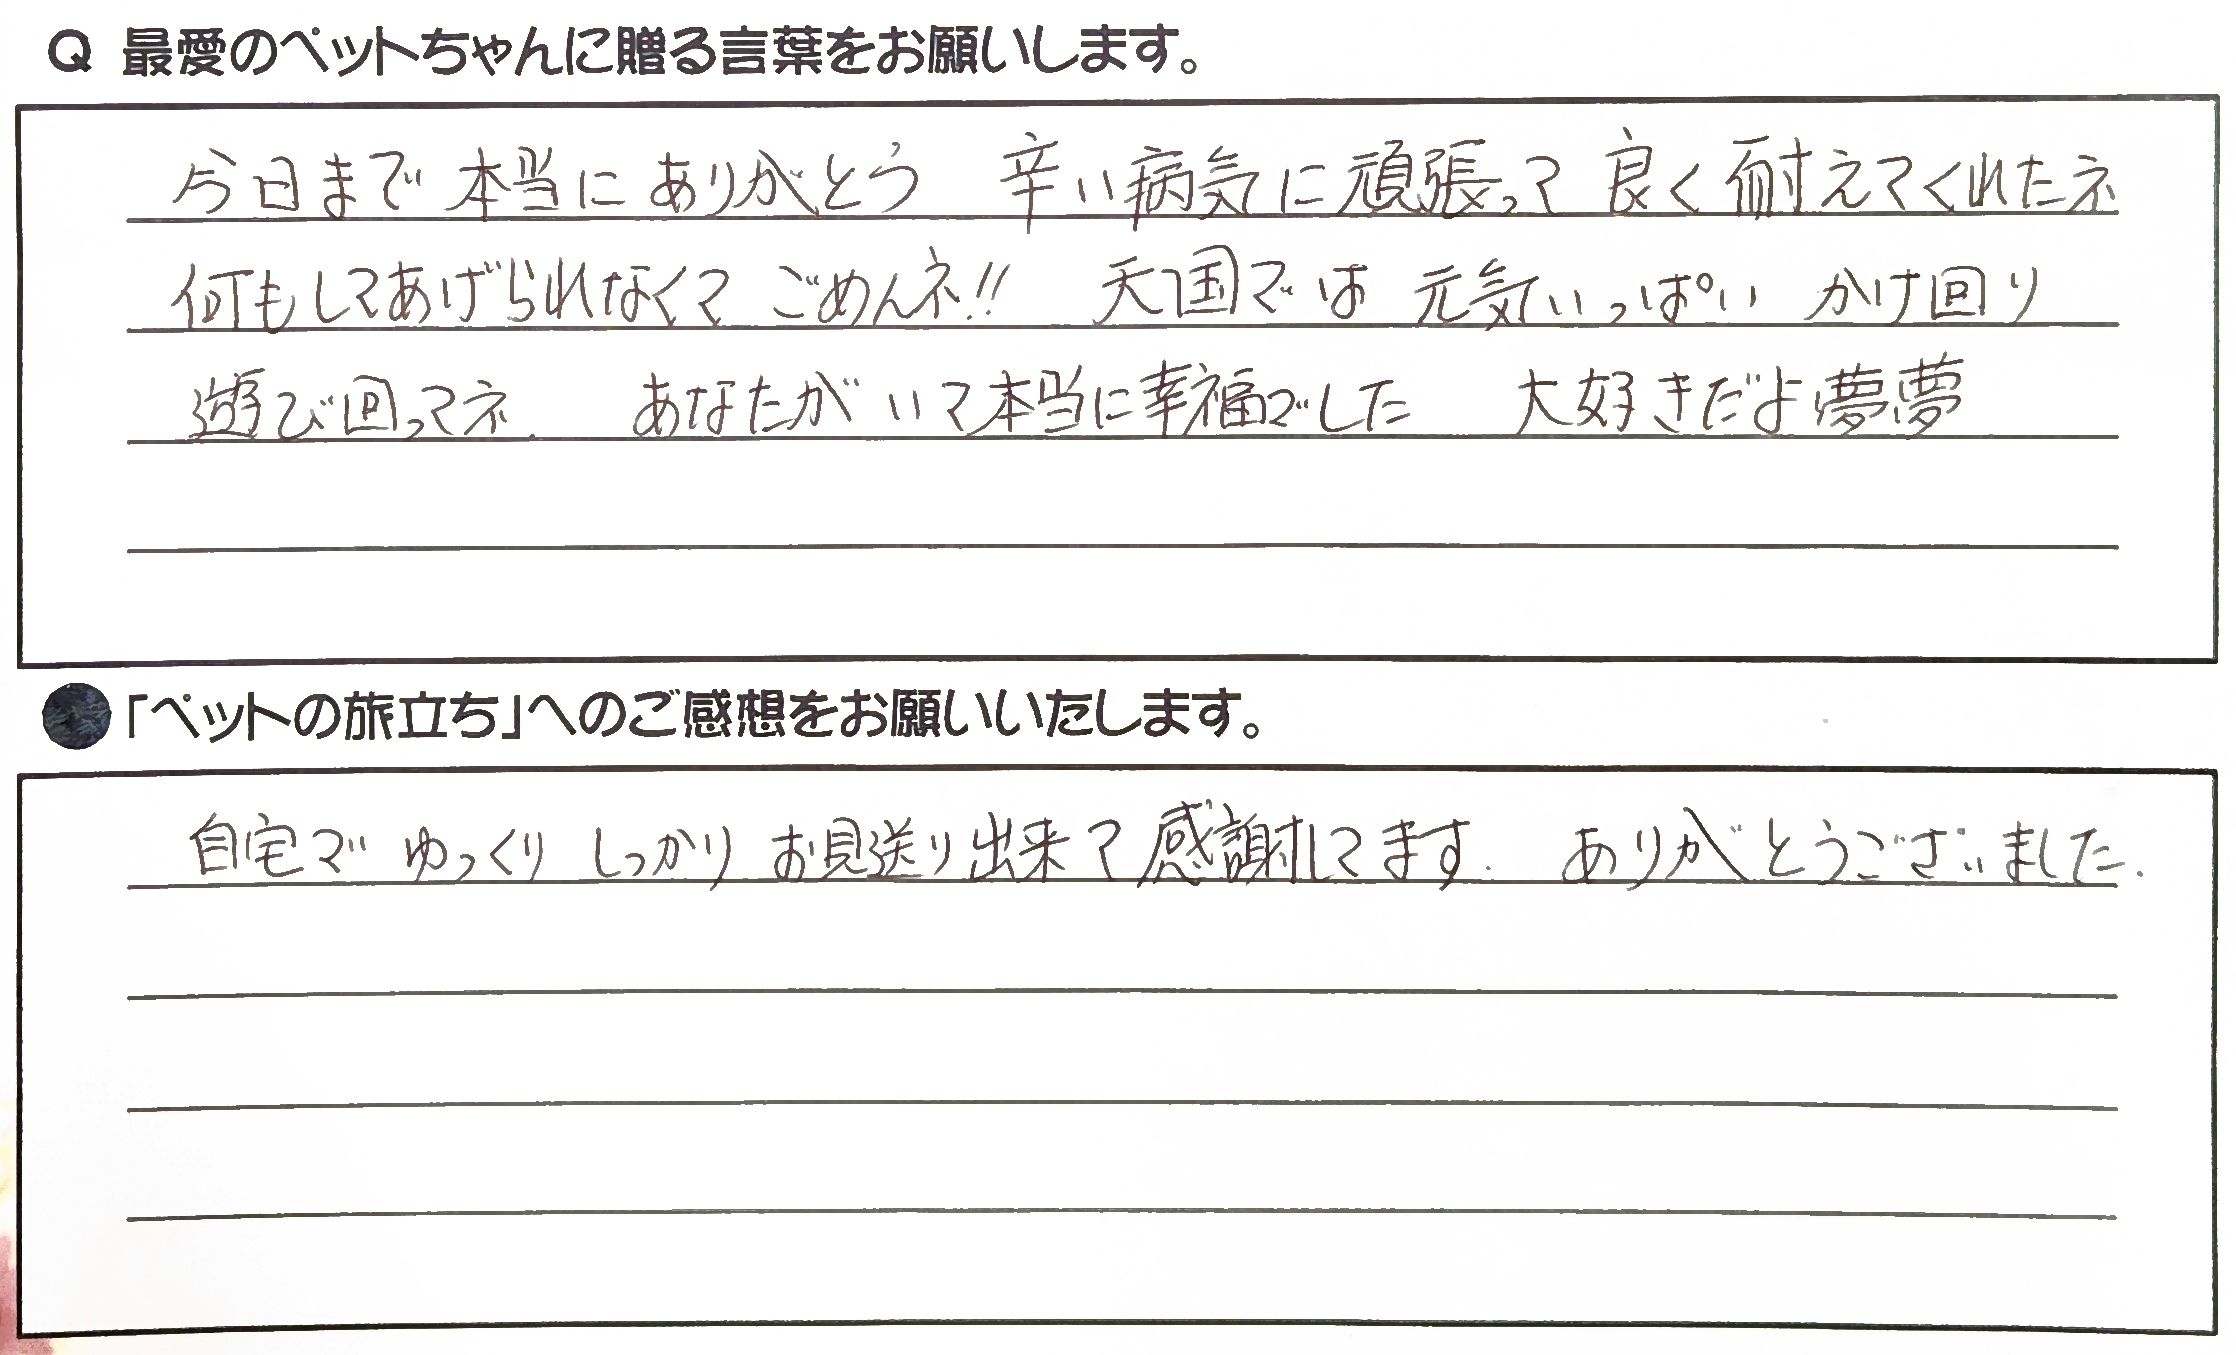 Q 最愛のペットちゃんに贈る言葉をお願いします。
今日まで 本当に ありがとう 辛い病気に頑張って 良く耐えてくれたネ
何もしてあげられなくて ごめんネ!! 天国では 元気いっぱい かけ回り
遊び回ってネ. あなたが いて本当に幸福でした 大好きだよ夢夢
●「ペットの旅立ち」へのご感想をお願いいたします。
自宅で ゆっくり しっかり お見送り出来て感謝してます. ありがとうございました.